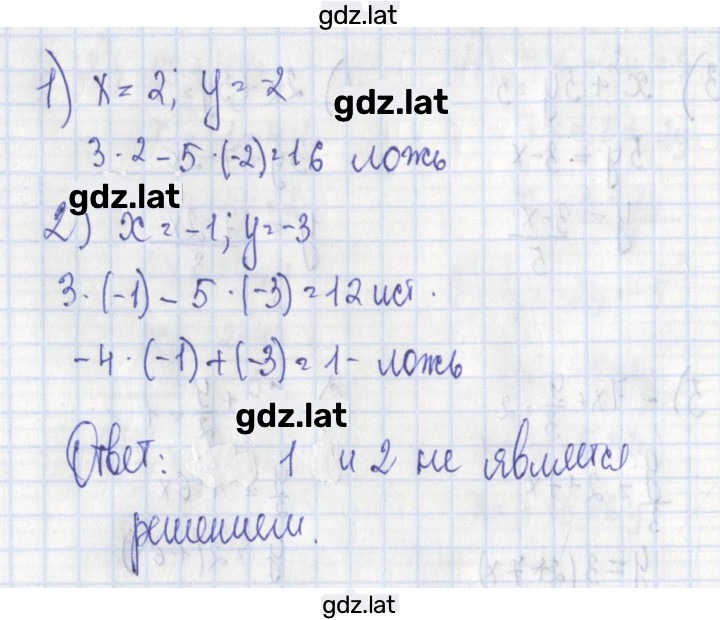 gdz.lat
1) x = 2; y = -2
gdz.lat
3 · 2 - 5 · (-2) = 16 ложь
gdz.lat
2) x = -1; y = -3
3 · (-1) - 5 · (-3) = 12 ист.
-4 · (-1) + (-3) = 1 - ложь
gdz.lat
Ответ: 1 и 2 не является
решением.
gdz.lat